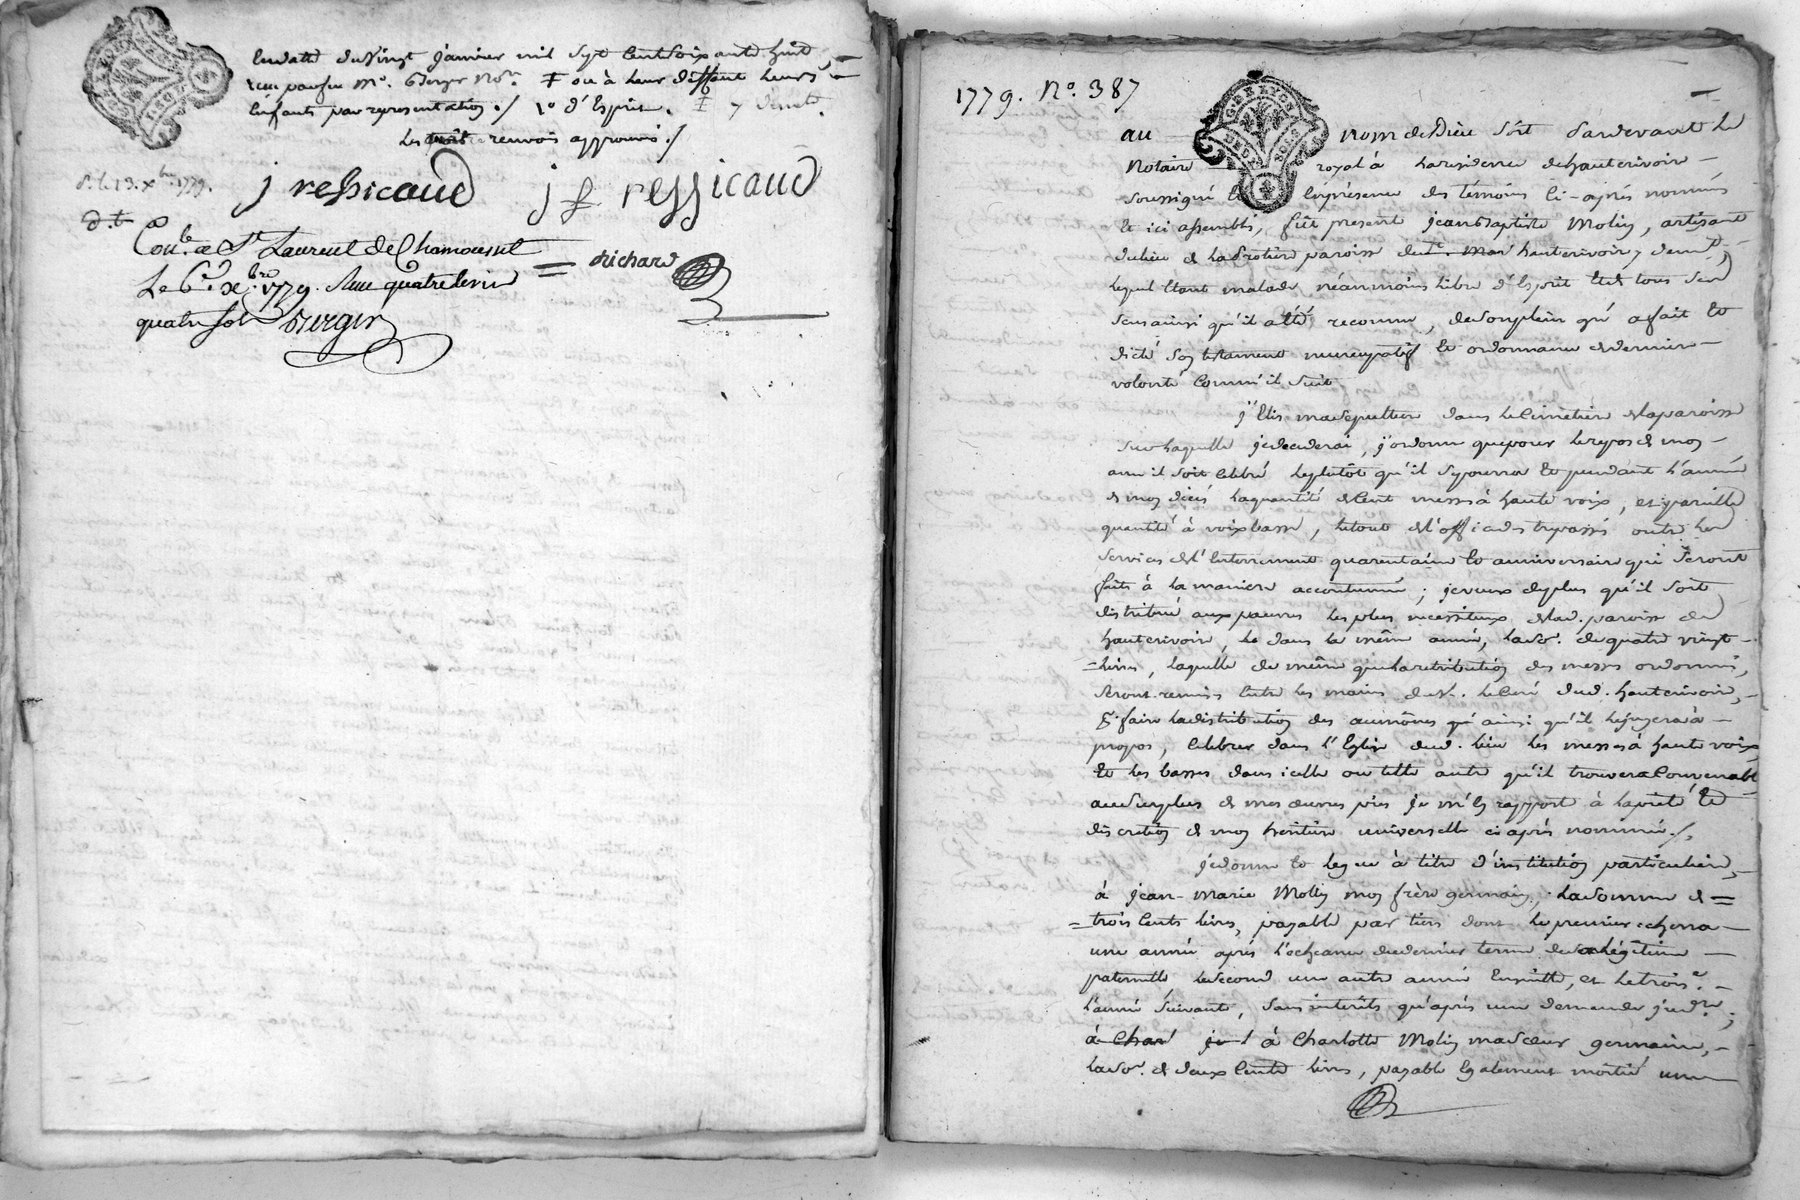 En datte du vingt janvier mil sept cent soixante huit,
reçu par feu Me. Berger Nore. ‡ ou à leur deffaut leurs
Enfants par representation ./ 1° d'Esprit. ‡ 7 demt
les trois renvois approuvés ./
d. le 13. xbre 1779.
j ressicaud j f ressicaud
d. t.
Conlé a St Laurent de Chamousset
Le 6e. Xbre. 1779. Reçu quatre livres
richard
quatre sols Berger
1779. No. 387
G. DE LYON
DEUX SOLS
au nom de Dieu soit pardevant le
Notaire royal à la residence de hauterivoire
soussigné et en présence des témoins ci-après nommés
et ici assemblés, fût present jean Baptiste Molin, artisant
du lieu de la frotiere paroisse dudt. hauterivoire y demt,
lequel Etant malade néanmoins libre d'Esprit Et de tous ses
sens ainsi qu'il a été reconnu, de son plein gré a fait et
dicté son testament nuncupatif et ordonnance de derniere
volonté comm'il suit
j'Elis ma sepulture dans le Cimetière de la paroisse
sur laquelle je decederai, j'ordonne que pour le repos de mon
ame il soit célébré le plutôt qu'il se pourra et pendant l'année
de mon décés la quantité de cent messes à haute voix, et pareille
quantité à voix basse, le tout de l'office des trepassés outre les
services de l'Enterrement quarentaine et anniversaire qui seront
faits à la maniere accoutumée ; je veux de plus qu'il soit
distribué aux pauvres les plus necessiteux de lad. paroisse de
hauterivoire, et dans la même année, la so. de quatre vingt
livres, laquelle de même que la retribution des messes ordonnées,
seront remises Entre les mains de M. le Curé dud. hauterivoire,
pr. faire la distribution des aumônes qe. ainsi qu'il le jugera à
propos, célébrer dans l'Eglise dud. lieu les messes à haute voix
et les basses dans icelle ou telle autre qu'il trouvera Convenable
au surplus de mes œuvres pies je m'En rapporte à la pieté et
discretion de mon heritiere universelle ci après nommée ./.
je donne et legue à titre d'institution particuliere,
à jean-marie Molin mon frère germain, la somme de
trois Cents livres, payable par tiers dont le premier echerra
une année après l'echeance du dernier terme de sa légitime
paternelle, le second une autre année Ensuitte, et le troise.
l'année suivante, sans interêts qu'après une demande judre. ;
à Char je l à Charlotte Molin ma sœur germaine,
la so. de deux Cents livres, payable Egalement moitié une